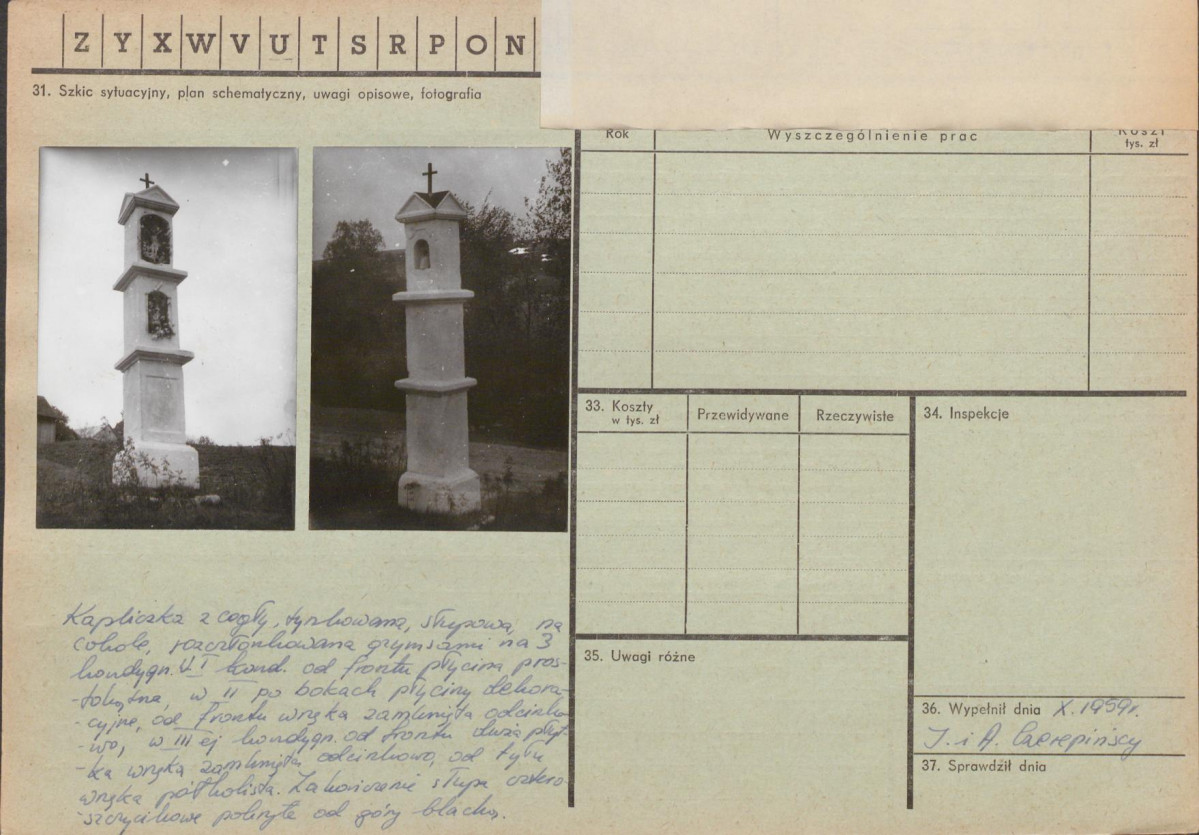 Z Y X W V U T S R P O N
31. Szkic sytuacyjny, plan schematyczny, uwagi opisowe, fotografia
Rok
Wyszczególnienie prac
Koszt
tys. zł
33. Koszty
w tys. zł
Przewidywane
Rzeczywiste
34. Inspekcje
Kapliczka z cegły, tynkowana, słupowa, na
cokole, rozczłonkowana gzymsami na 3
kondygn. W I kond. od frontu płycina pros-
-tokątna, w II po bokach płyciny dekora-
-cyjne, od frontu wnęka zamknięta odcinko-
-wo, w III ej kondygn. od frontu duża płyt-
-ka wnęka zamknięta odcinkowo, od tyłu
wnęka półkolista. Zakończenie słupa cztero-
-szczycikowe pokryte od góry blachą.
35. Uwagi różne
36. Wypełnił dnia X. 1959r.
J. i A. Czerepińscy
37. Sprawdził dnia